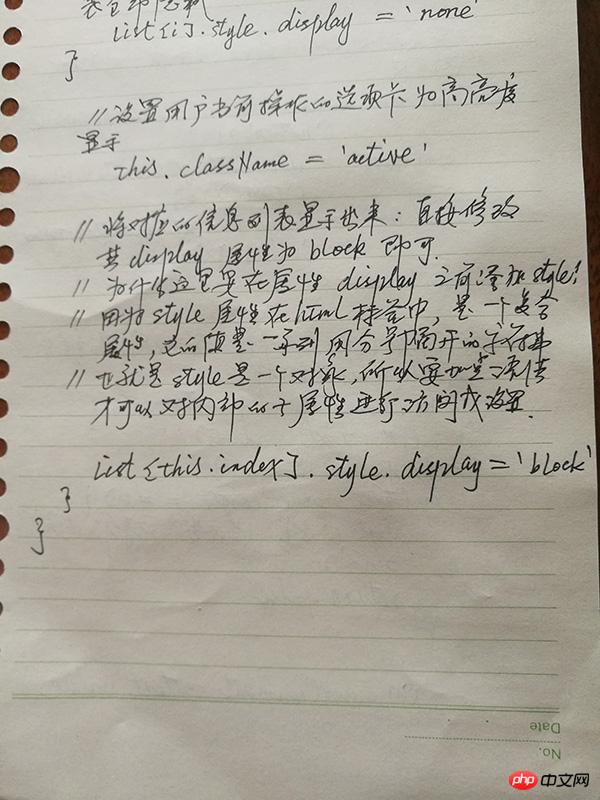 list[i].style.display = 'none'
}
//设置用户当前操作的选项卡为高亮度
显示
this.className = 'active'
//将对应的信息列表显示出来:直接修改
其display属性为block即可.
//为什么这里要在属性display之前添加style?
//因为style属性在html标签中,是一个复合
属性,它的值是一系列用分号隔开的字符串
//也就是style是一个对象,所以要加
才可以对内部的子属性进行访问或设置.
list[this.index].style.display='block'
}
}
Date
No.
php中文网